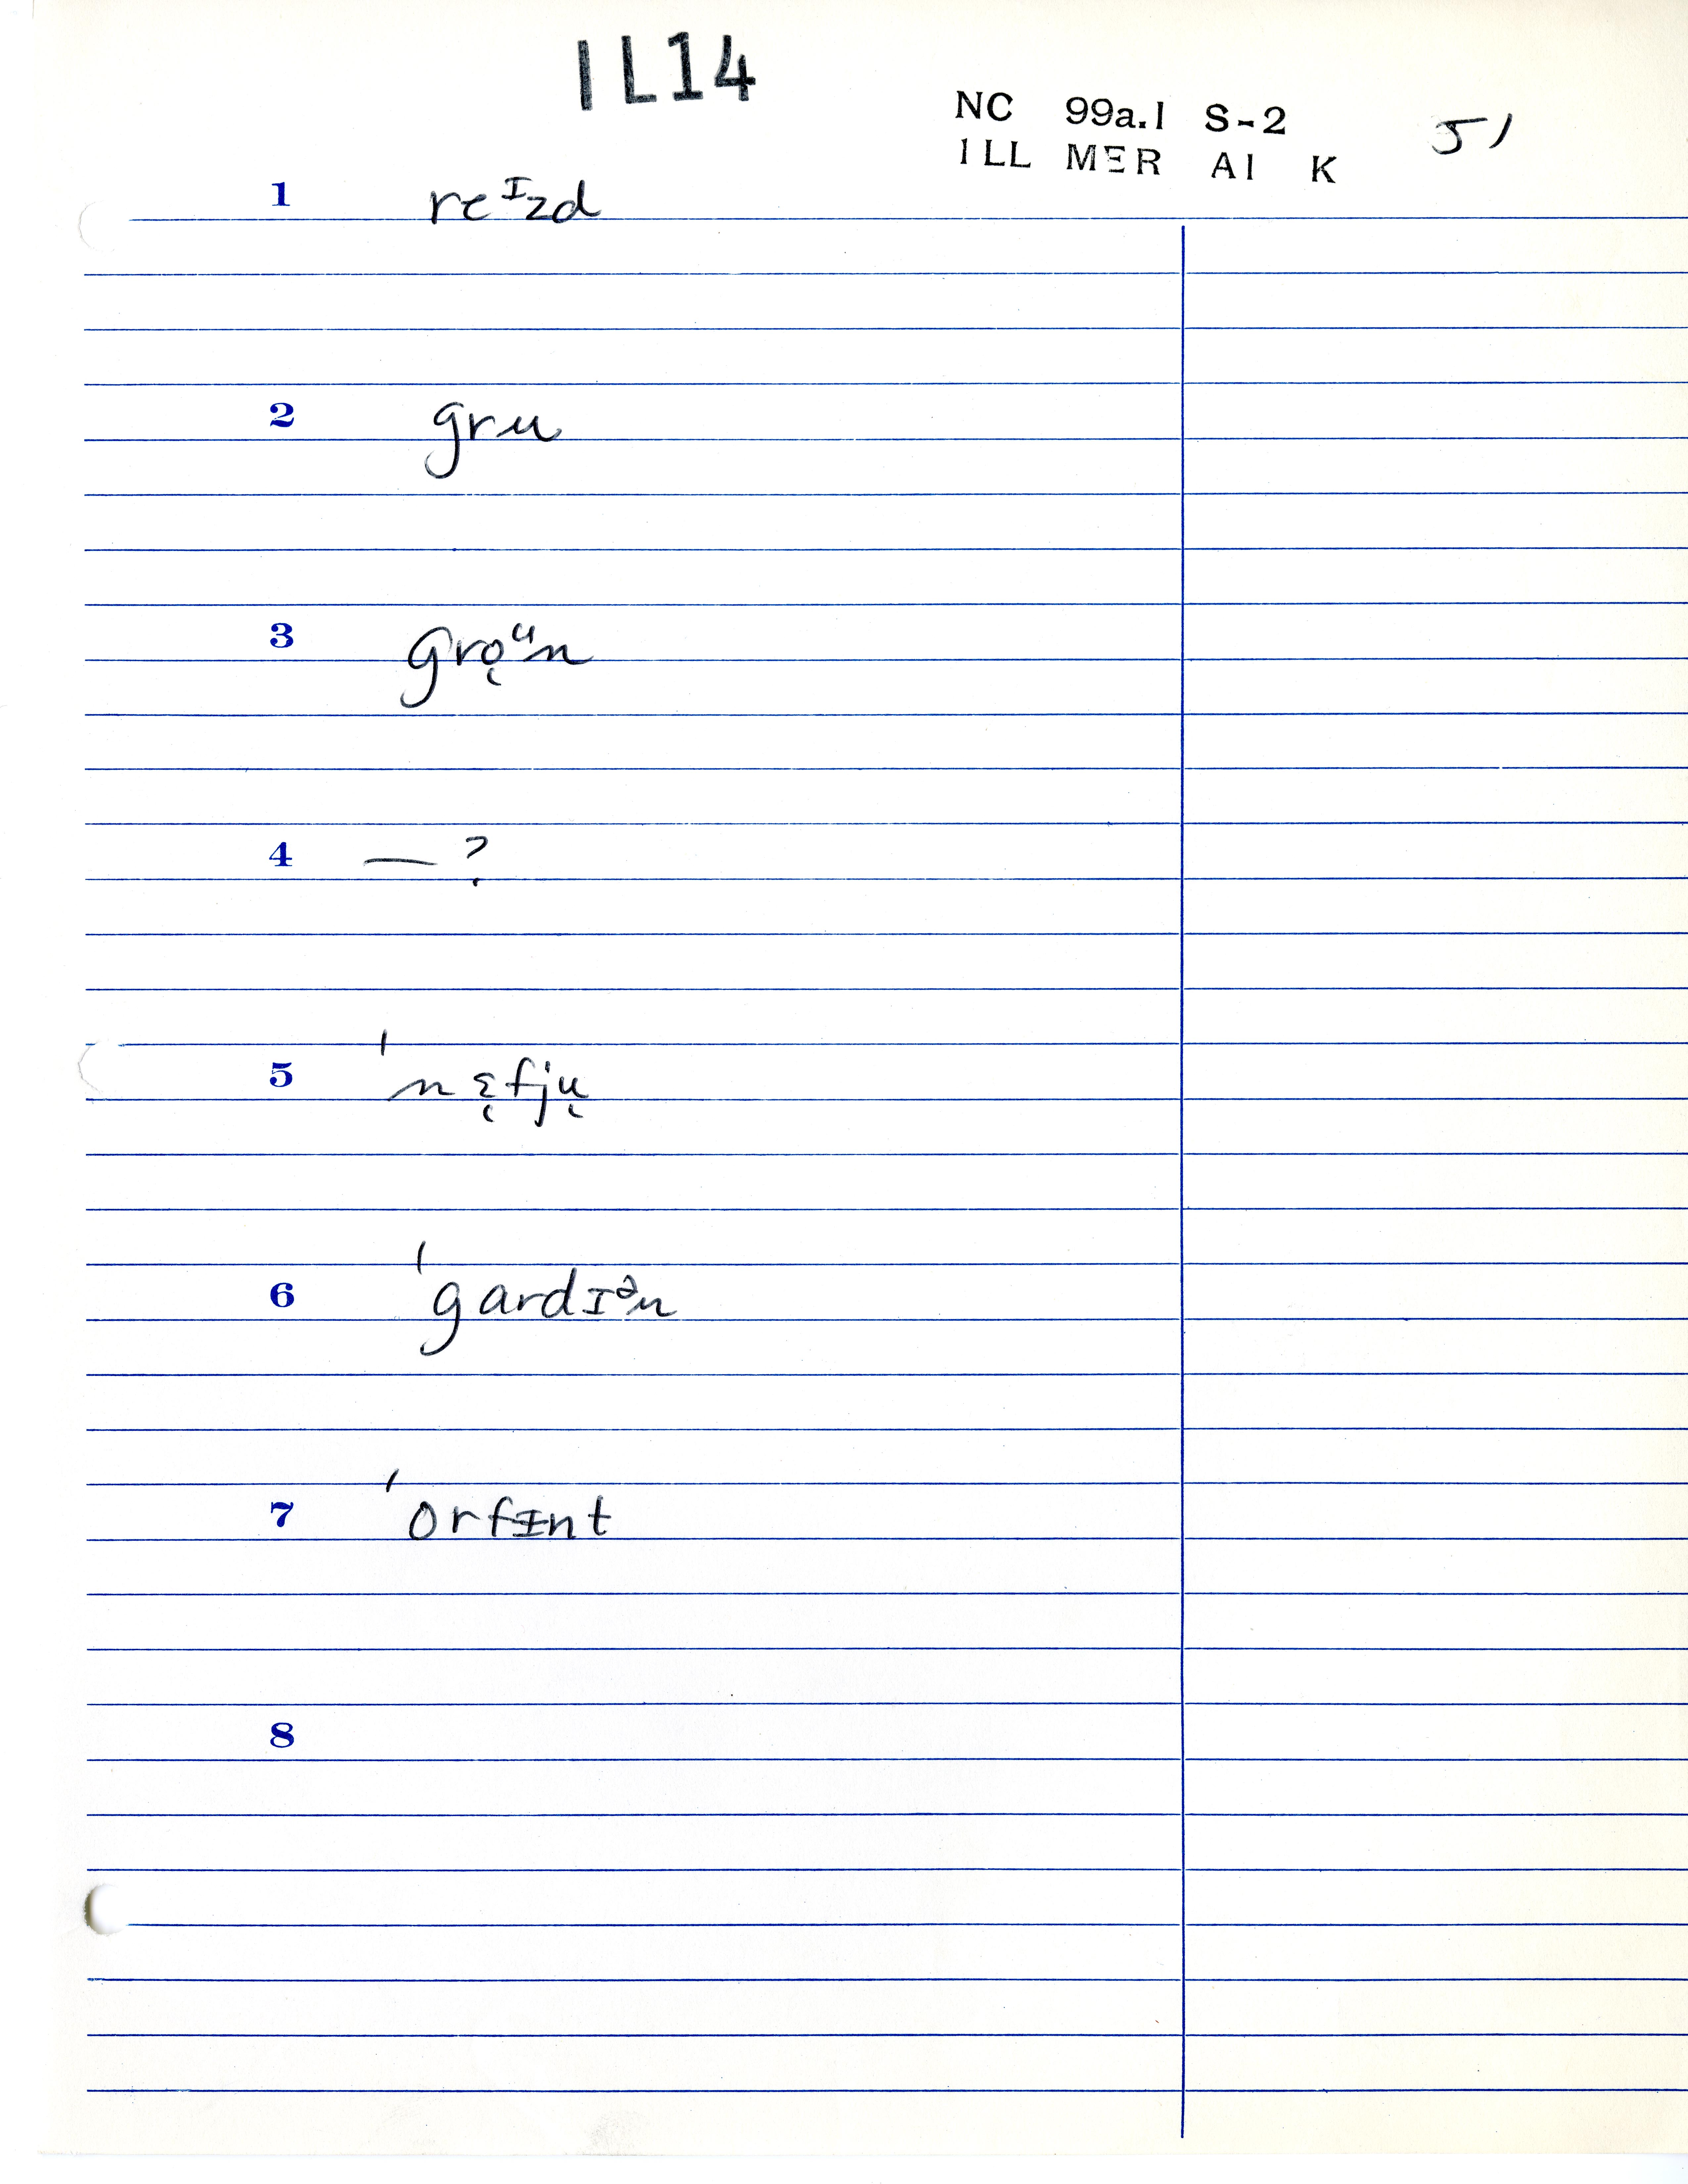 IL14
NC 99a.1 S-2 51
ILL MER AI K
1 reᴵzd
2 gru
3 gro̜ᵘn
4 — ?
5 ˈnɛ̜fju̜
6 ˈgardɪᵊn
7 ˈorfɪnt
8